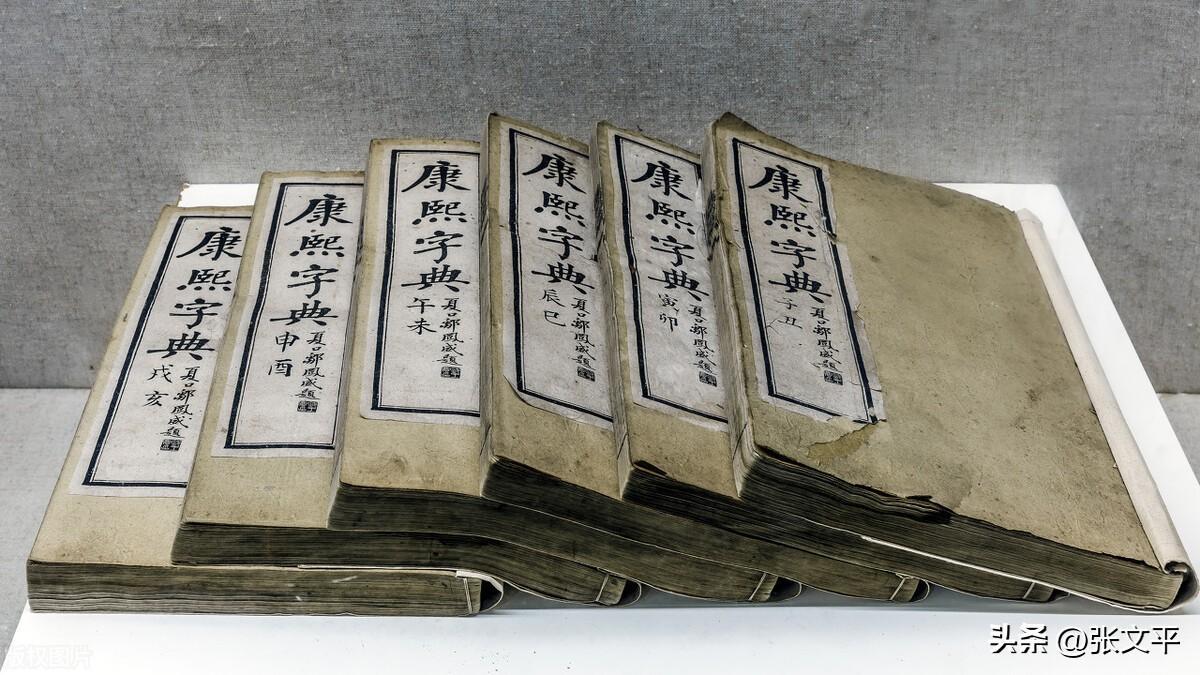 康熙字典
戌亥
夏口鄒鳳盛題
康熙字典
申酉
夏口鄒鳳盛題
康熙字典
午未
夏口鄒鳳盛題
康熙字典
辰巳
夏口鄒鳳盛題
康熙字典
寅卯
夏口鄒鳳盛題
康熙字典
子丑
夏口鄒鳳盛題
头条 @张文平
版权图片